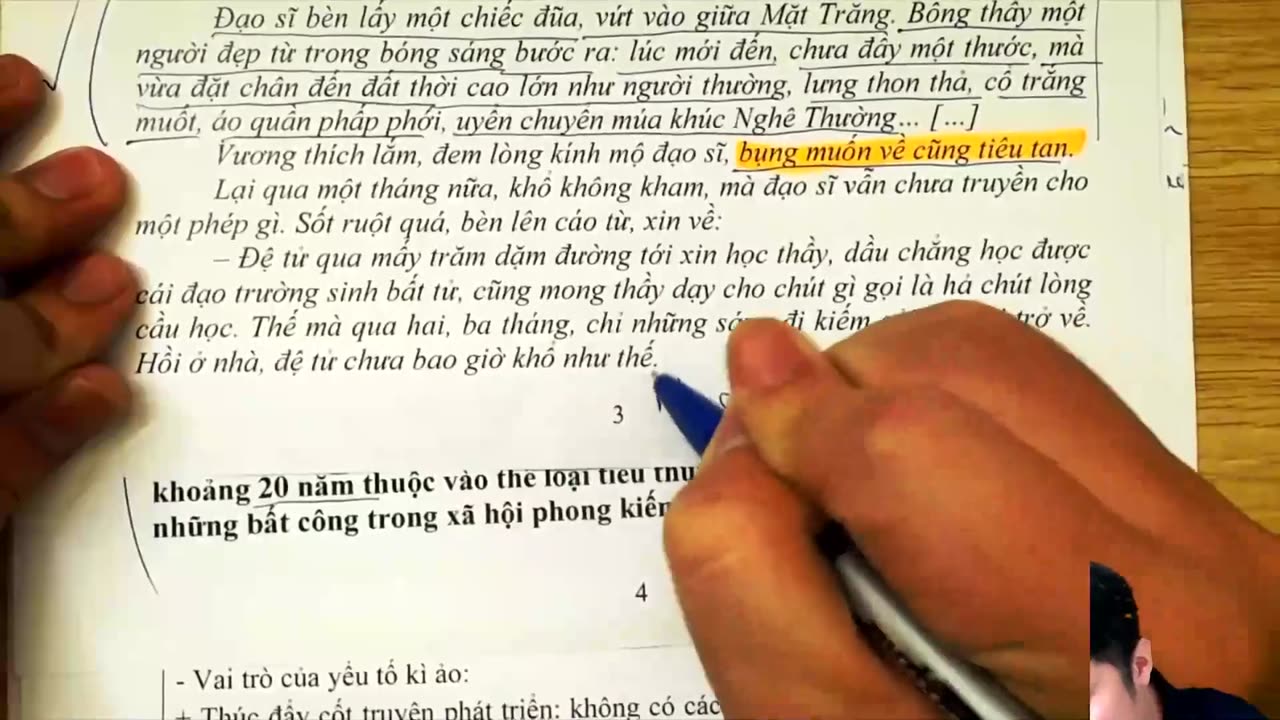 Đạo sĩ bèn lấy một chiếc đũa, vứt vào giữa Mặt Trăng. Bỗng thấy một
người đẹp từ trong bóng sáng bước ra: lúc mới đến, chưa đầy một thước, mà
vừa đặt chân đến đất thời cao lớn như người thường, lưng thon thả, cổ trắng
muốt, áo quần phấp phới, uyển chuyển múa khúc Nghê Thường... [...]
Vương thích lắm, đem lòng kính mộ đạo sĩ, bụng muốn về cũng tiêu tan.
Lại qua một tháng nữa, khổ không kham, mà đạo sĩ vẫn chưa truyền cho
một phép gì. Sốt ruột quá, bèn lên cáo từ, xin về:
– Đệ tử qua mấy trăm dặm đường tới xin học thầy, dầu chẳng học được
cái đạo trường sinh bất tử, cũng mong thầy dạy cho chút gì gọi là hả chút lòng
cầu học. Thế mà qua hai, ba tháng, chỉ những đi kiếm trở về.
Hồi ở nhà, đệ tử chưa bao giờ khổ như thế.
3
khoảng 20 năm thuộc vào thể loại tiểu
những bất công trong xã hội phong kiến
4
- Vai trò của yếu tố kì ảo:
+ Thúc đẩy cốt truyện phát triển: không có các